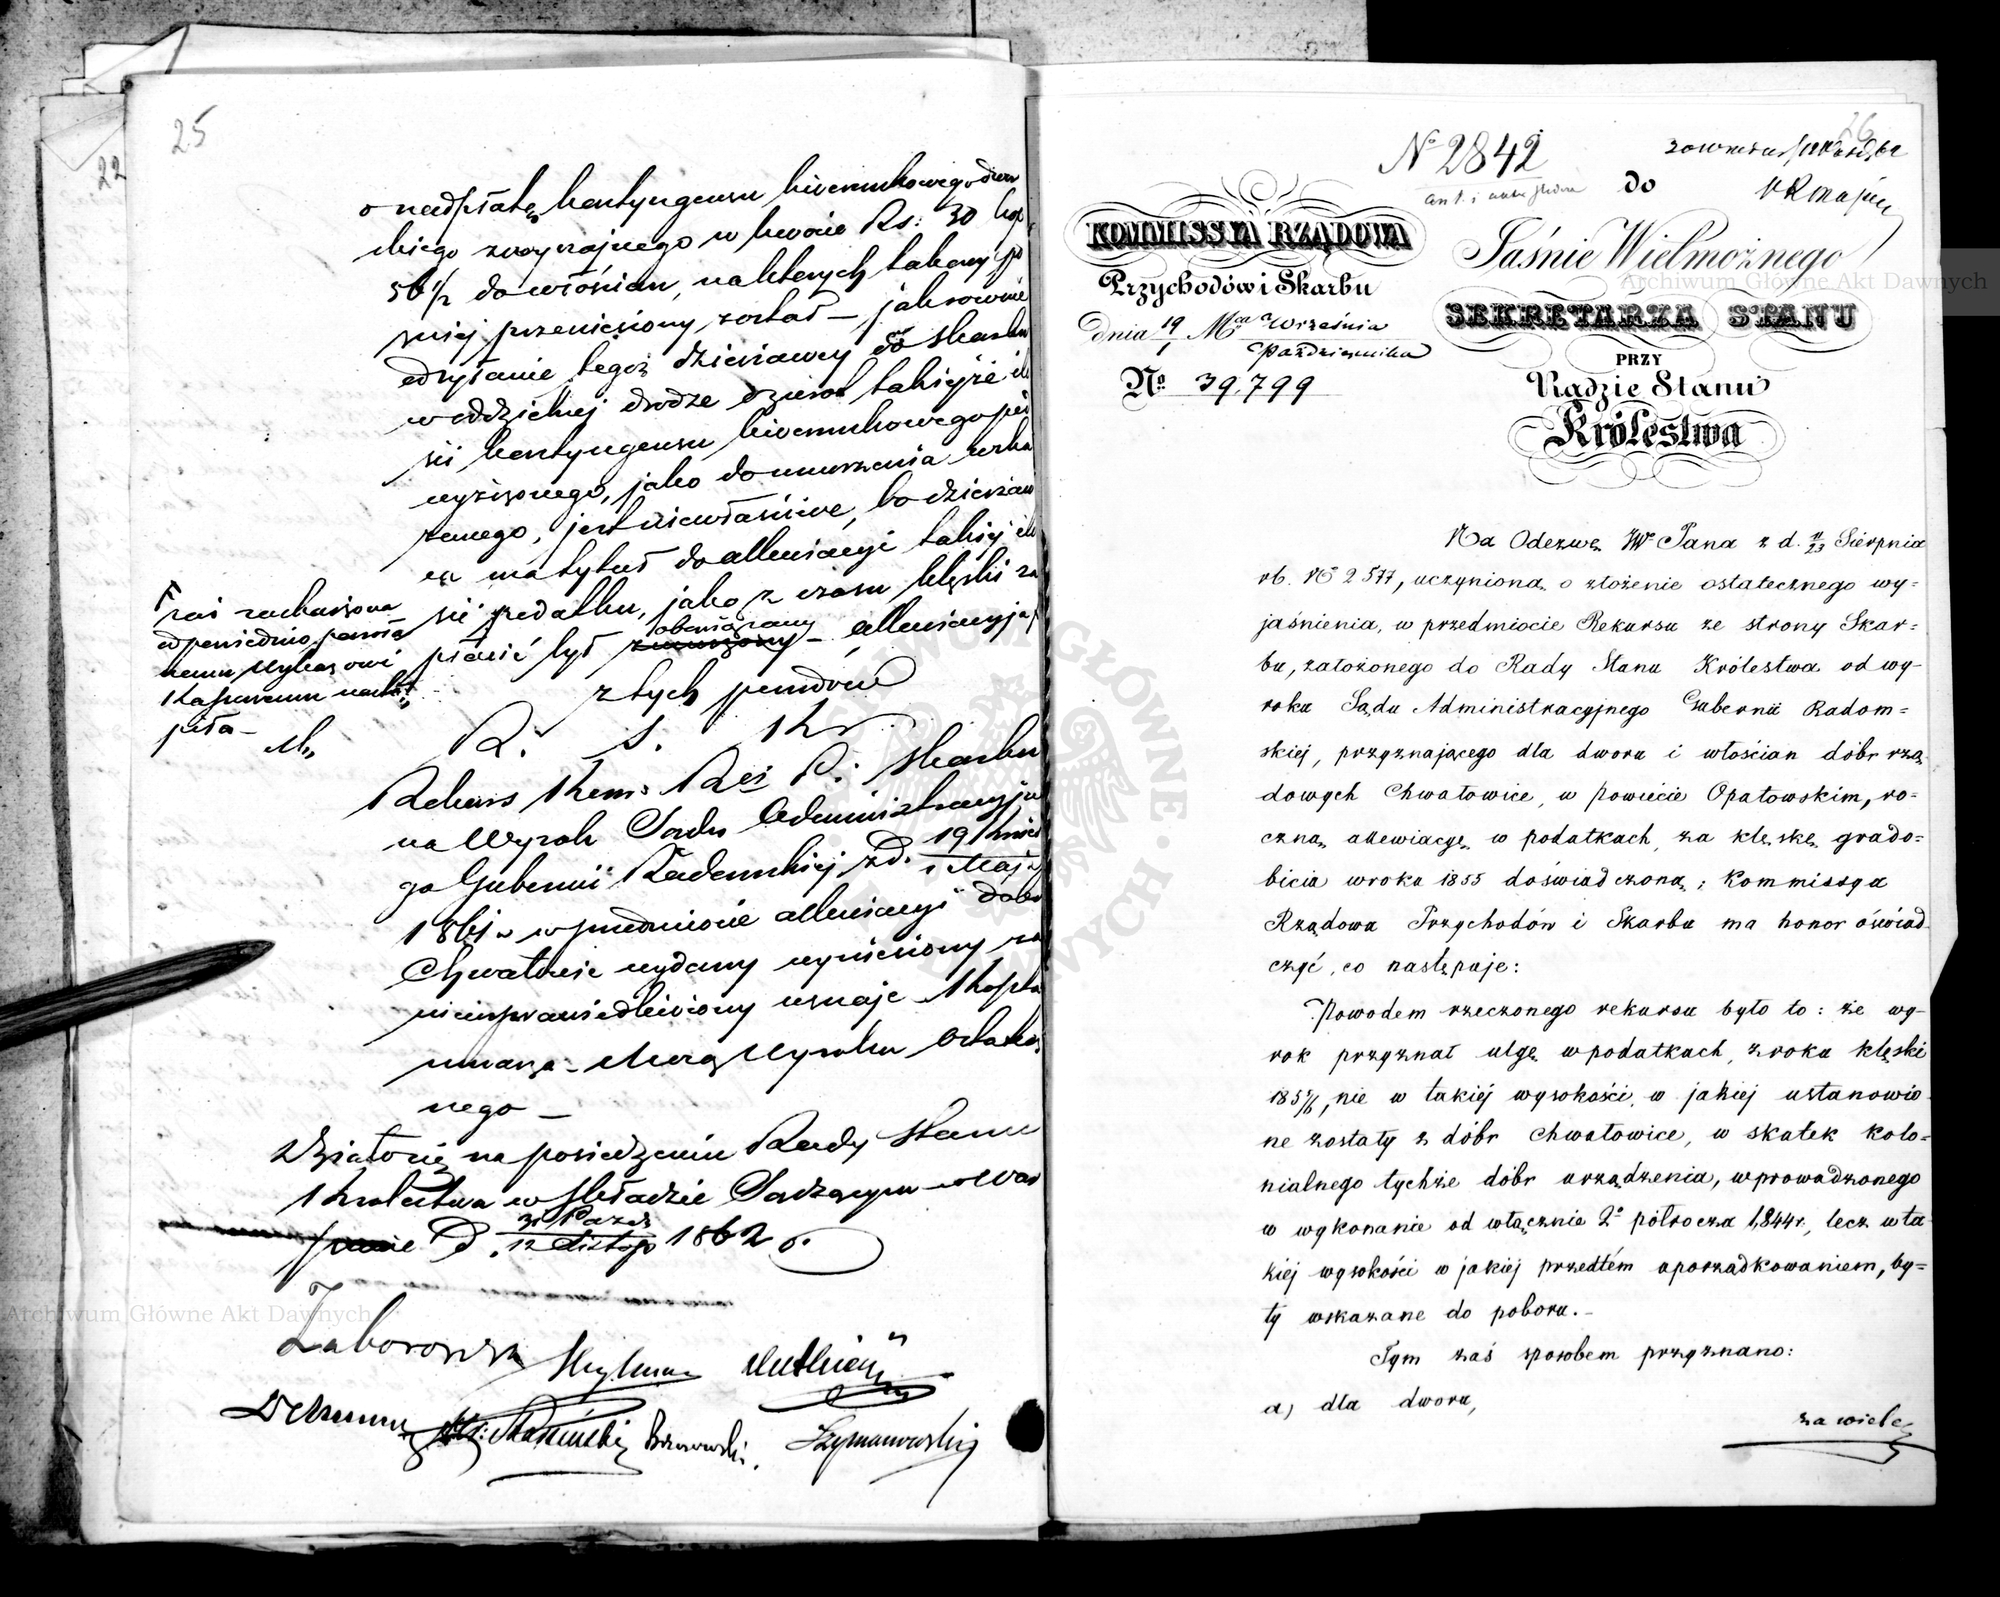 25
22
o nadpłatę kontyngensu liwerunkowego dwor
skiego zwyczajnego w kwocie Rs: 30 kop
56½ do włościan, na których takowy
sniej przeniesiony został — jak równie
odzyskanie tegoż dzierżawcy do Skarbu
w oddzielnej drodze
kontyngensu liwerunkowego
wyższonego, jako do umorzenia
rzonego, jest niewłaściwe, bo dzierżaw
ca ma tytuł do allewiacyi takiej
podatku, jako z czasu klęski za
obowiązany
płacić był — allewiacyja
zaś rachowana
odpowiednio
nemu Wykazowi
piła —
z tych powodów
R. S. Kr.
Rekurs Kom: Rej P. i Skarbu
na Wyrok Sądu Administracyjne
go Gubernii Radomskiej z D. 19 Kwiet
1 Maja
1861 r. w przedmiocie allewiacyi Dóbr
Chwałowice wydany wyniesiony za
nieusprawiedliwiony uznaje Koszta
umarza — Mocą Wyroku Ostatecz
nego —
Działo się na posiedzeniu Rady Stanu
Królestwa w Składzie Sądzącym w War
szawie D. 31 Paźdz
12 Listop 1862 r.
Zaborowski
Brzozowski. Szymanowski
26
No 2842
do
KOMMISSYA RZĄDOWA
Przychodów i Skarbu
dnia 19 Mca Września
1 Października
No 39,799
Jaśnie Wielmożnego
SEKRETARZA STANU
PRZY
Radzie Stanu
Królestwa
Na Odezwę JW Pana z d. 11/23 Sierpnia
rb. No 2577, uczynioną o złożenie ostatecznego wy-
jaśnienia, w przedmiocie Rekursu ze strony Skar-
bu, założonego do Rady Stanu Królestwa od wy-
roku Sądu Administracyjnego Gubernii Radom-
skiej, przyznającego dla dworu i włościan dóbr rzą
dowych Chwałowice, w powiecie Opatowskim, ro-
czną allewiacyę w podatkach, za klęskę grado-
bicia w roku 1855 doświadczoną; Kommissya
Rządowa Przychodów i Skarbu ma honor oświad
czyć, co następuje:
Powodem rzeczonego rekursu było to: że wy-
rok przyznał ulgę w podatkach, z roku klęski
1855/6, nie w takiéj wysokości, w jakiej ustanowio
ne zostały z dóbr Chwałowice, w skutek kolo-
nialnego tychże dóbr urządzenia, wprowadzonego
w wykonanie od włącznie 2o półrocza 1844 r., lecz w ta
kiej wysokości w jakiej przedtém uporządkowaniem, by-
ły wskazane do poboru. —
Tym zaś sposobem przyznano:
a) dla dworu,
za wiele
Archiwum Główne Akt Dawnych
Archiwum Główne Akt Dawnych